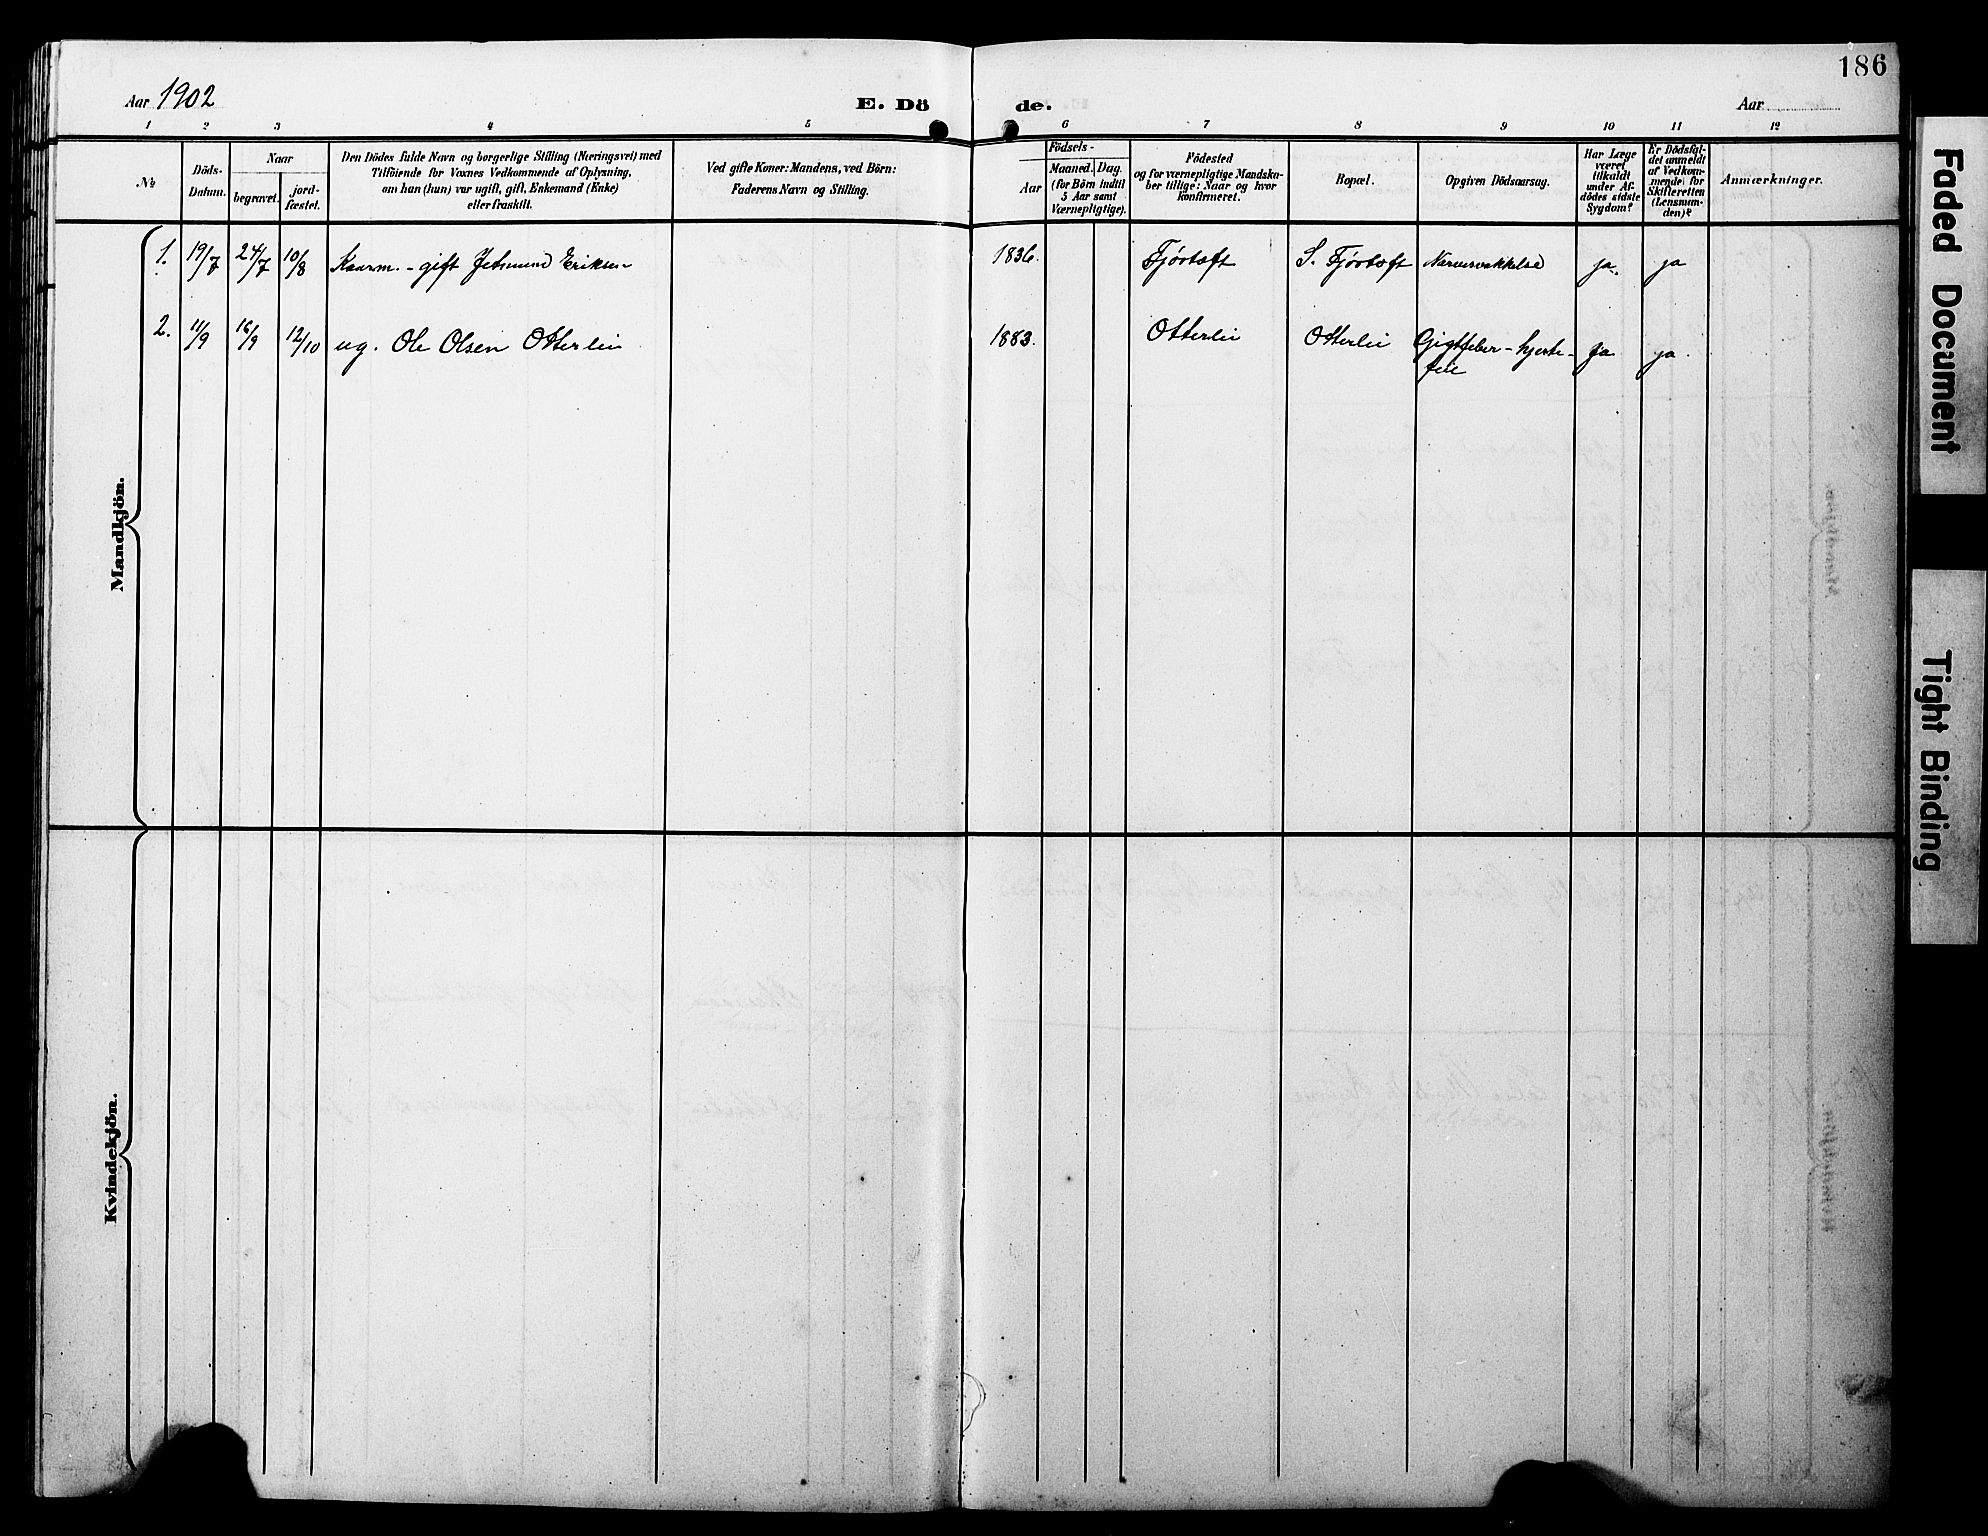 186
Aar 1902
E. Dö de.
Aar
1 2 3 4 5 6 7 8 9 10 11 12
№
Döds-
Datum.
Naar
begravet.
jord-
fæstet.
Den Dödes fulde Navn og borgerlige Stilling (Næringsvei) med
Tilföiende for Voxnes Vedkommende af Oplysning,
om han (hun) var ugift, gift, Enkemand (Enke)
eller fraskilt.
Ved gifte Koner: Mandens, ved Börn:
Faderens Navn og Stilling.
Födsels-
Aar
Maaned. Dag.
(for Börn indtil
5 Aar samt
Værnepligtige).
Födested
og for værnepligtige Mandska-
ber tillige: Naar og hvor
konfirmeret.
Bopæl.
Opgiven Dödsaarsag.
Har Læge
været
tilkaldt
under Af-
dödes sidste
Sygdom?
Er Dödsfal-
det anmeldt
af Vedkom-
mende for
Skifteretten
(Lensman-
den)?
Anmærkninger.
Mandkjön.
1. 19/7 24/7 10/8 Kaarm. - gift Jetmund Eriksen 1836. Fjörtoft S. Fjörtoft Nervesvækkelse ja. ja
2. 11/9 16/9 12/10 ug. Ole Olsen Otterlei 1883. Otterlei Otterlei Gigtfeber - hjerte- ja ja.
feil
Kvindekjön.
Faded Document
Tight Binding